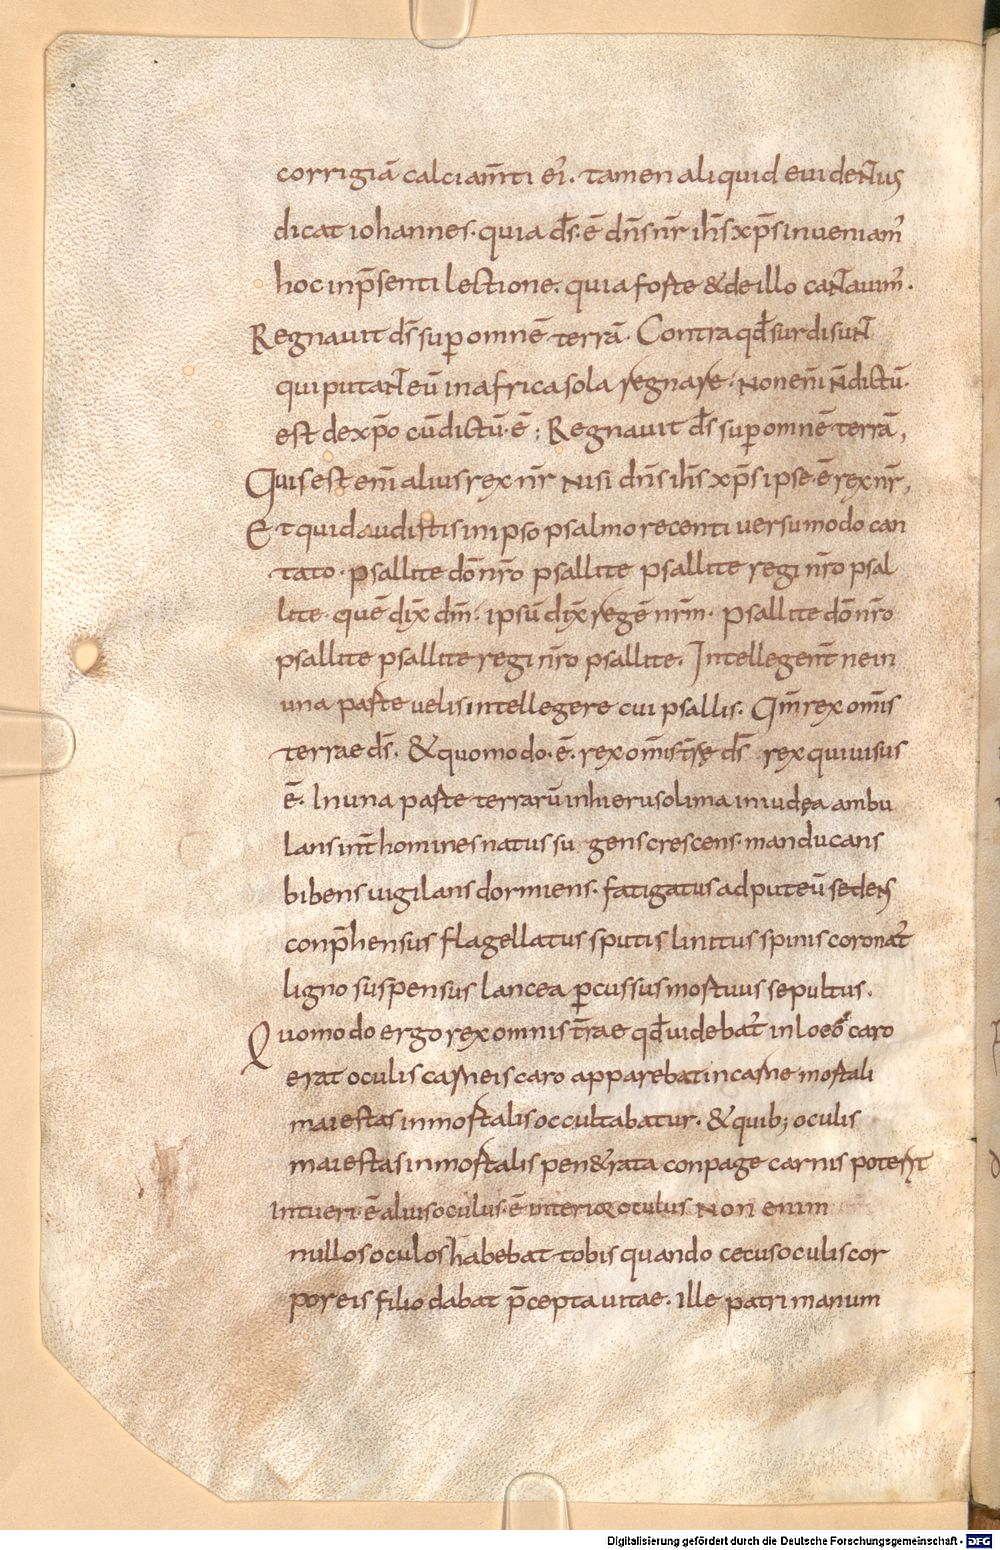 corrigiā calciam̄ti ei᾽. tamen aliquid euidentius
dicat iohannes. quia d̄s. ē dn̄s nr̄ ih̄s xp̄s inueniam᾽
hoc in p̄senti lectione. quia forte & de illo cantauim᾽.
Regnauit d̄s sup omnē terrā. Contra qd̄ surdi sunt
qui putant eū in africa sola regnare. Non eni᷄ n̄ dictū.
est de xp̄o cū dictū. ē; Regnauit d̄s sup omnē terrā,
Quis est eni᷄ alius rex nr̄ Nisi dn̄s ih̄s xp̄s ipse. ē rex nr̄,
Et quid audistis in ipso psalmo recenti uersu modo can
tato. psallite dō nr̄o psallite psallite regi nr̄o psal
lite. quē dix̄ dm̄. ipsū dix̄ regē nr̄m. psallite dō nr̄o
psallite psallite regi nr̄o psallite. Intellegent̄ ne in
una parte uelis intellegere cui psallis. Qm̄ rex om̄is
terrae d̄s. & quomodo. ē. rex om̄is tr̄ę d̄s rex qui uisus
ē. In una parte terrarū in hierusolima in iudęa ambu
lans int̄ homines natus su gens crescens. manducans
bibens uigilans dormiens. fatigatus ad puteū sedens
conp̄hensus flagellatus sputis linitus spinis coronat᾽
ligno suspensus lancea pcussus mortuus sepultus.
Quomodo ergo rex omnis tr̄ae qd̄ uidebat᾽ in loco caro
erat oculis carneis caro apparebat in carne mortali
maiestas inmortalis occultabatur. & quib; oculis
maiestas inmortalis pen&rata conpage carnis potent
Intueri. ē alius oculus. ē interior oculus Non enim
nullos oculos habebat tobis quando cecus oculis cor
poreis filio dabat p̄cepta uitae. ille patri manum
Digitalisierung gefördert durch die Deutsche Forschungsgemeinschaft - DFG